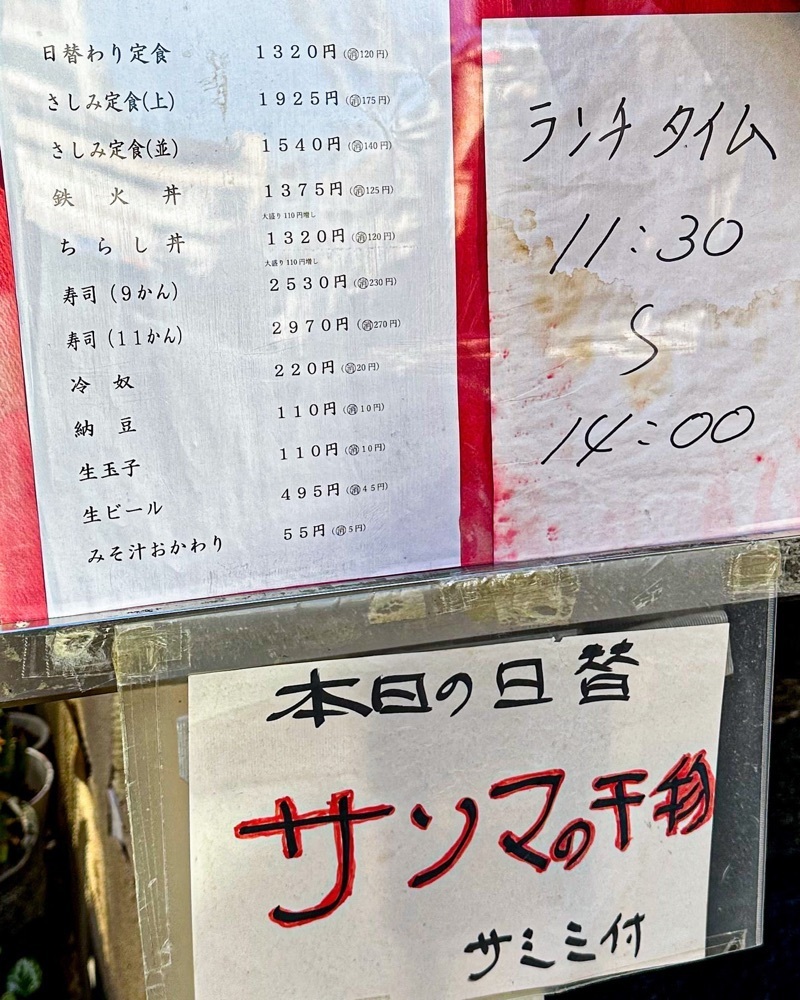 日替わり定食 1320円(㊡120円)
さしみ定食(上) 1925円(㊡175円)
さしみ定食(並) 1540円(㊡140円)
鉄火丼 1375円(㊡125円)
大盛り110円増し
ちらし丼 1320円(㊡120円)
大盛り110円増し
寿司(9かん) 2530円(㊡230円)
寿司(11かん) 2970円(㊡270円)
冷奴 220円(㊡20円)
納豆 110円(㊡10円)
生玉子 110円(㊡10円)
生ビール 495円(㊡45円)
みそ汁おかわり 55円(㊡5円)
ランチタイム
11:30
S
14:00
本日の日替
サンマの干物
サミミ付